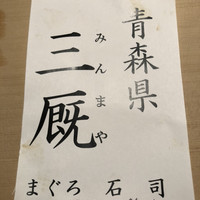 青森県
三厩
みんまや
まぐろ 石 司